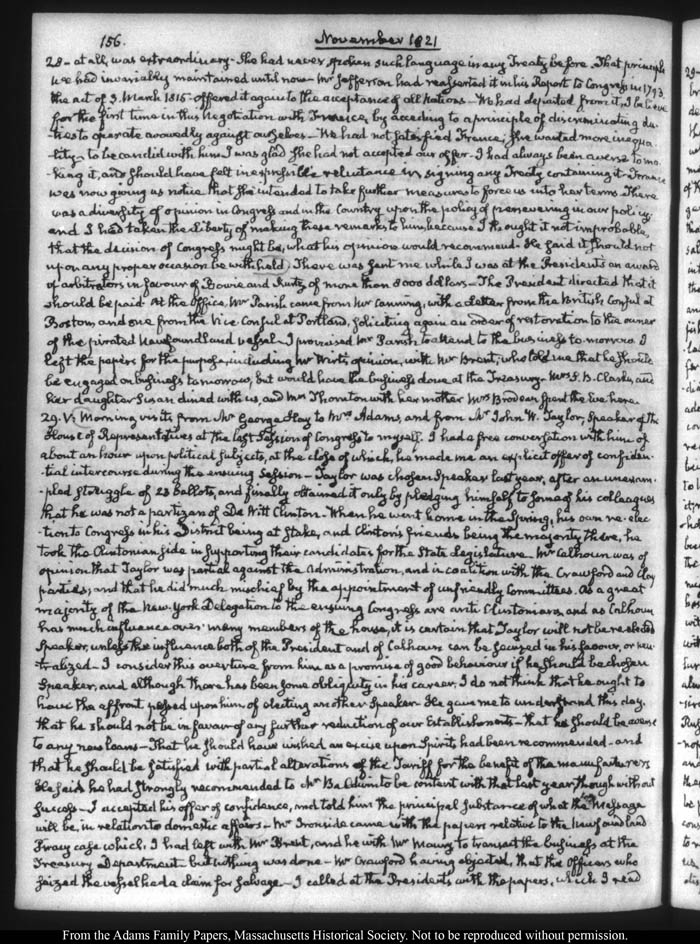 156. November 1821
28 - at all, was extraordinary - She had never spoken such language in any Treaty before. That principle
we had invariably maintained until now - Mr Jefferson had reasserted it in his Report to Congress in 1793
the act of 3. March 1815 - offered it again to the acceptance of all Nations - We had departed from it, I believe
for the first time in this Negotiation with France, by acceding to a principle of discriminating du-
-ties to operate avowedly against ourselves - We had not satisfied France; she wanted more inequa-
-lity - to be candid with him I was glad she had not accepted our offer - I had always been averse to ma-
-king it, and should have felt inexpressible reluctance in signing any Treaty containing it - France
was now giving us notice that she intended to take further measures to force us into her terms. There
was a diversity of opinion in Congress and in the Country upon the policy of persevering in our policy;
and I had taken the liberty of making these remarks to him, because I thought it not improbable,
that the decision of Congress might be, what his opinion would recommend. He said it should not
upon any proper occasion be withheld. There was sent me while I was at the President's an award
of arbitrators in favour of Bowie and Kurtz of more than 8000 dollars - The President directed that it
should be paid. At the Office, Mr Parish came from Mr Canning, with a Letter from the British Consul at
Boston, and one from the Vice-Consul at Portland, soliciting again an order of restoration to the owner
of the pirated Newfoundland vessel - I promised Mr Parish to attend to the business to-morrow. I
left the papers for the purpose, including Mr Wirt's opinion, with Mr Brent, who told me that he should
be engaged on business to-morrow, but would have the business done at the Treasury. Mrs S. B. Clark, and
her daughter Susan dined with us, and Mrs Thornton with her mother Mrs Brodeau spent the eve. here.
29. V. Morning visits from Mr George Hay to Mrs Adams, and from Mr John W. Taylor, Speaker of the
House of Representatives at the last Session of Congress to myself. I had a free conversation with him of
about an hour upon political subjects, at the close of which, he made me an explicit offer of confiden-
-tial intercourse during the ensuing Session - Taylor was chosen Speaker last year, after an unexam-
-pled struggle of 23 ballots, and finally obtained it only by pledging himself to some of his colleagues
that he was not a partizan of De Witt Clinton - When he went home in the Spring, his own re-elec-
-tion to Congress in his District being at stake, and Clinton's friends being the majority there, he
took the Clintonian side in supporting their candidates for the State legislature. Mr Calhoun was of
opinion that Taylor was partial against the Administration, and in coalition with the Crawford and Clay
parties; and that he did much mischief by the appointment of unfriendly Committees. As a great
majority of the New-York Delegation to the ensuing Congress are anti Clintonians, and as Calhoun
has much influence over many members of the house, it is certain that Taylor will not be re-elected
Speaker, unless the influence both of the President and of Calhoun can be secured in his favour, or neu-
-tralized - I consider this overture from him as a promise of good behaviour if he should be chosen
Speaker, and although there has been some obliquity in his career, I do not think that he ought to
have the affront passed upon him of electing another Speaker. He gave me to understand this day,
that he should not be in favour of any further reduction of our Establishments - that he should be averse
to any new loans - That he should have wished an excise upon Spirits had been recommended - and
that he should be satisfied with partial alterations of the Tariff for the benefit of the manufacturers
He said he had strongly recommended to Mr Baldwin to be content with that last year, though without
success - I accepted his offer of confidence, and told him the principal substance of what the Message
will be, in relation to domestic affairs - Mr Ironside came with the papers relative to the Newfoundland
Piracy case which, I had left with Mr Brent, and he with Mr Maury to transact the business at the
Treasury Department but nothing was done - Mr Crawford having objected, that the Officers who
seized the vessel had a claim for Salvage - I called at the President's with the papers, which I read
From the Adams Family Papers, Massachusetts Historical Society. Not to be reproduced without permission.